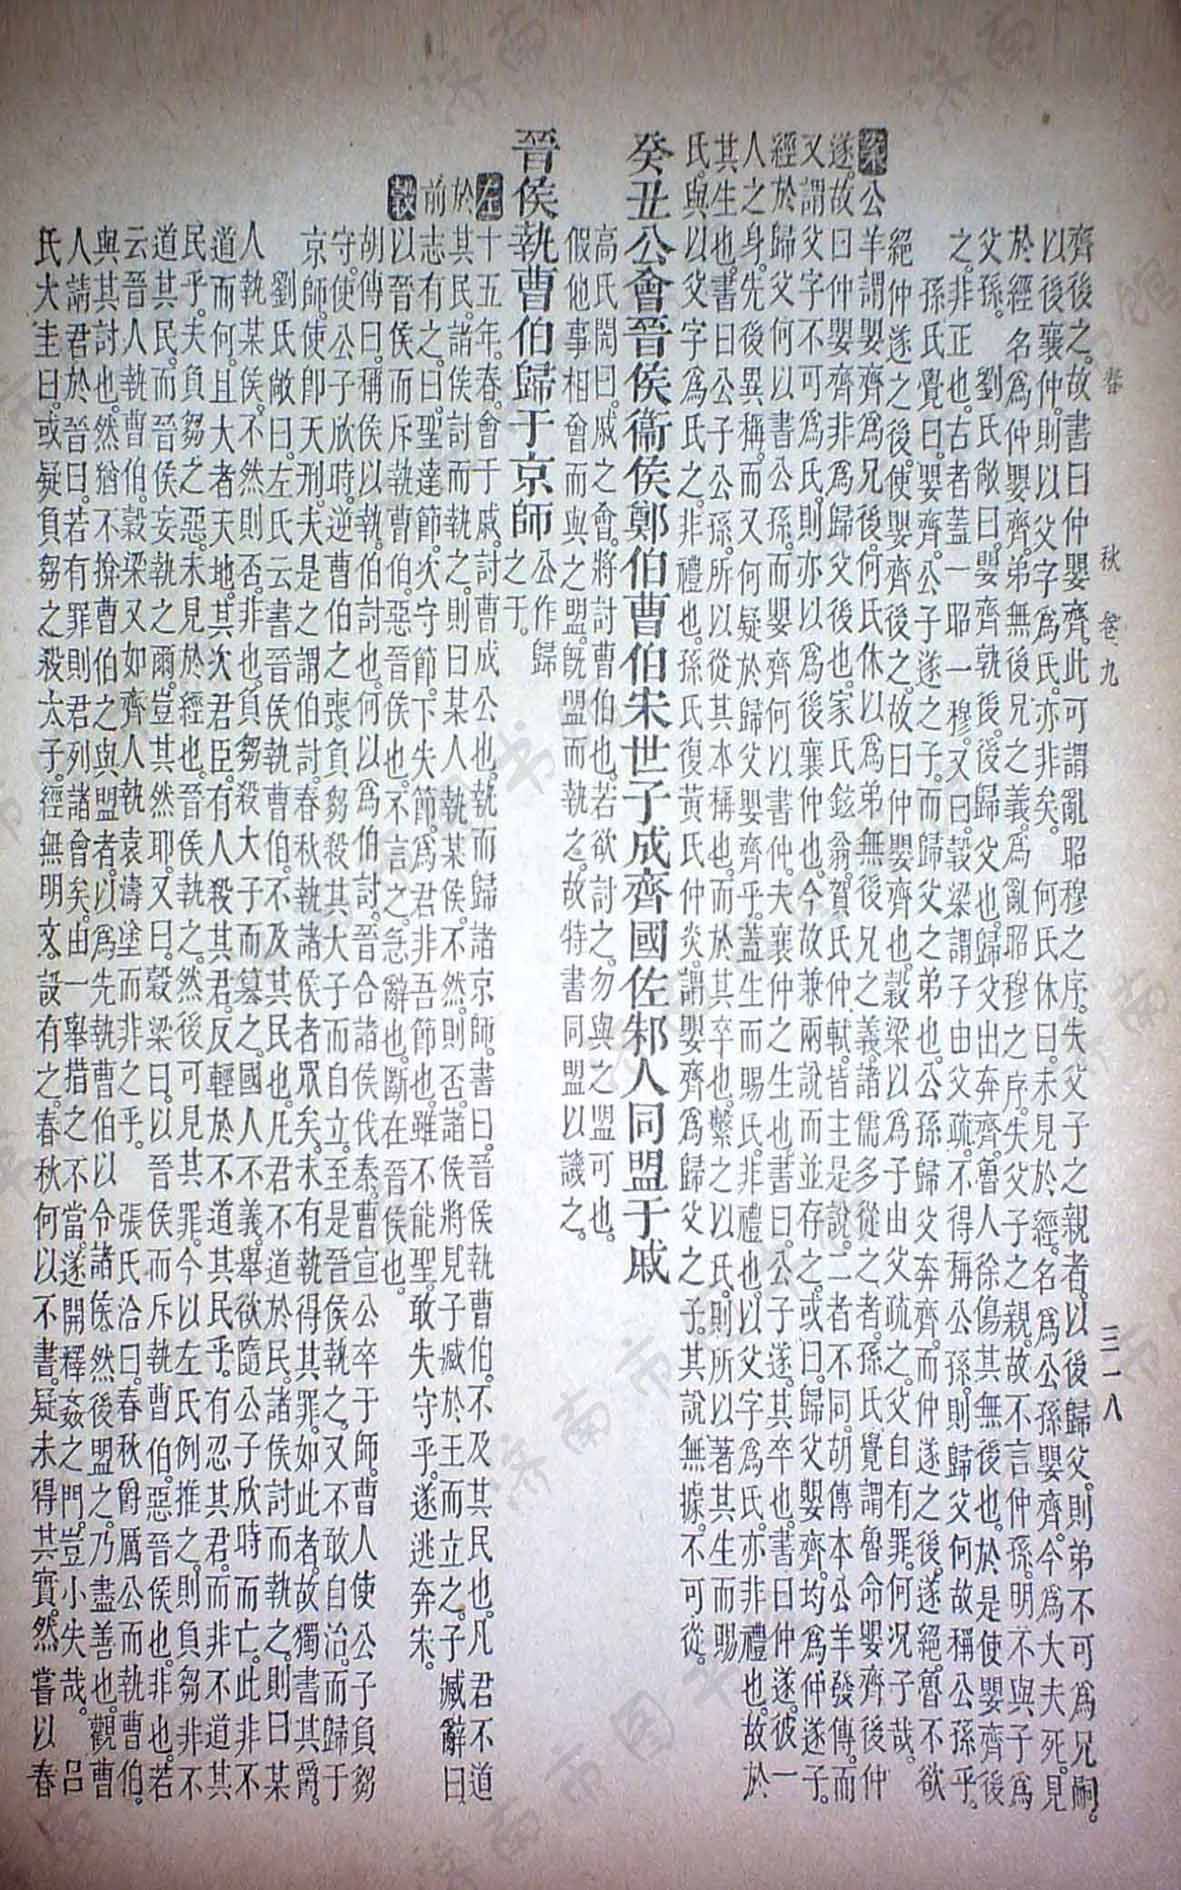 春　秋　卷九　三一八
齊後之故書曰仲嬰齊此可謂亂昭穆之序失父子之親者以後歸父則弟不可爲兄嗣
以後襄仲則以父字爲氏亦非矣。何氏休曰未見於經名爲公孫嬰齊今爲大夫死見
於經名爲仲嬰齊弟無後兄之義爲亂昭穆之序失父子之親故不言仲孫明不與子爲
父孫。劉氏敞曰嬰齊孰後後歸父也歸父出奔齊魯人徐傷其無後也於是使嬰齊後
之非正也古者蓋一昭一穆又曰穀梁謂子由父疏不得稱公孫則歸父何故稱公孫乎。
孫氏覺曰嬰齊公子遂之子而歸父之弟也公孫歸父奔齊而仲遂之後遂絕魯不欲
絕仲遂之後使嬰齊後之故曰仲嬰齊也穀梁以爲子由父疏之父自有罪何況子哉。
案公羊謂嬰齊爲兄後何氏休以爲弟無後兄之義諸儒多從之者孫氏覺謂魯命嬰齊後仲
遂故曰仲嬰齊非爲歸父後也家氏鉉翁賀氏仲軾皆主是說二者不同胡傳本公羊發傳而
又謂父字不可爲氏則亦以爲後襄仲也今故兼兩說而並存之或曰歸父嬰齊均爲仲遂子
經於歸父何以書公孫而嬰齊何以書仲夫襄仲之生也書曰公子遂其卒也書曰仲遂彼一
人之身先後異稱而又何疑於歸父嬰齊乎蓋生而賜氏非禮也以父字爲氏亦非禮也故於
其生也書曰公子公孫所以從其本稱也而於其卒也繫之以氏則所以著其生而賜
氏與以父字爲氏之非禮也孫氏復黃氏仲炎謂嬰齊爲歸父之子其說無據不可從。
癸丑公會晉侯衞侯鄭伯曹伯宋世子成齊國佐邾人同盟于戚
高氏閌曰戚之會將討曹伯也若欲討之勿與之盟可也。
假他事相會而與之盟旣盟而執之故特書同盟以譏之。
晉侯執曹伯歸于京師公作歸之于。
左十五年春會于戚討曹成公也執而歸諸京師書曰晉侯執曹伯不及其民也凡君不道
於其民諸侯討而執之則曰某人執某侯不然則否諸侯將見子臧於王而立之子臧辭曰
前志有之曰聖達節次守節下失節爲君非吾節也雖不能聖敢失守乎遂逃奔宋。
穀以晉侯而斥執曹伯惡晉侯也不言之急辭也斷在晉侯也。
胡傳曰稱侯以執伯討也何以爲伯討晉合諸侯伐秦曹宣公卒于師曹人使公子負芻
守使公子欣時逆曹伯之喪負芻殺其大子而自立至是晉侯執之又不敢自治而歸于
京師使卽天刑夫是之謂伯討春秋執諸侯者眾矣未有執得其罪如此者故獨書其爵。
劉氏敞曰左氏云書晉侯執曹伯不及其民也凡君不道於民諸侯討而執之則曰某
人執某侯不然則否非也負芻殺大子而篡之國人不義舉欲隨公子欣時而亡此非不
道而何且大者天地其次君臣有人殺其君反輕於不道其民乎有忍其君而非不道其
民乎夫負芻之惡未見於經也晉侯執之然後可見其罪今以左氏例推之則負芻非不
道其民而晉侯妄執之爾豈其然耶又曰穀梁曰以晉侯而斥執曹伯惡晉侯也非也若
云晉人執曹伯穀梁又如齊人執袁濤塗而非之乎。張氏洽曰春秋爵厲公而執曹伯
與其討也然猶不揜曹伯之與盟者以爲先執曹伯以令諸侯然後盟之乃盡善也觀曹
人請君於晉曰若有罪則君列諸會矣由一舉措之不當遂開釋姦之門豈小失哉。呂
氏大圭曰或疑負芻之殺太子經無明文設有之春秋何以不書疑未得其實然嘗以春